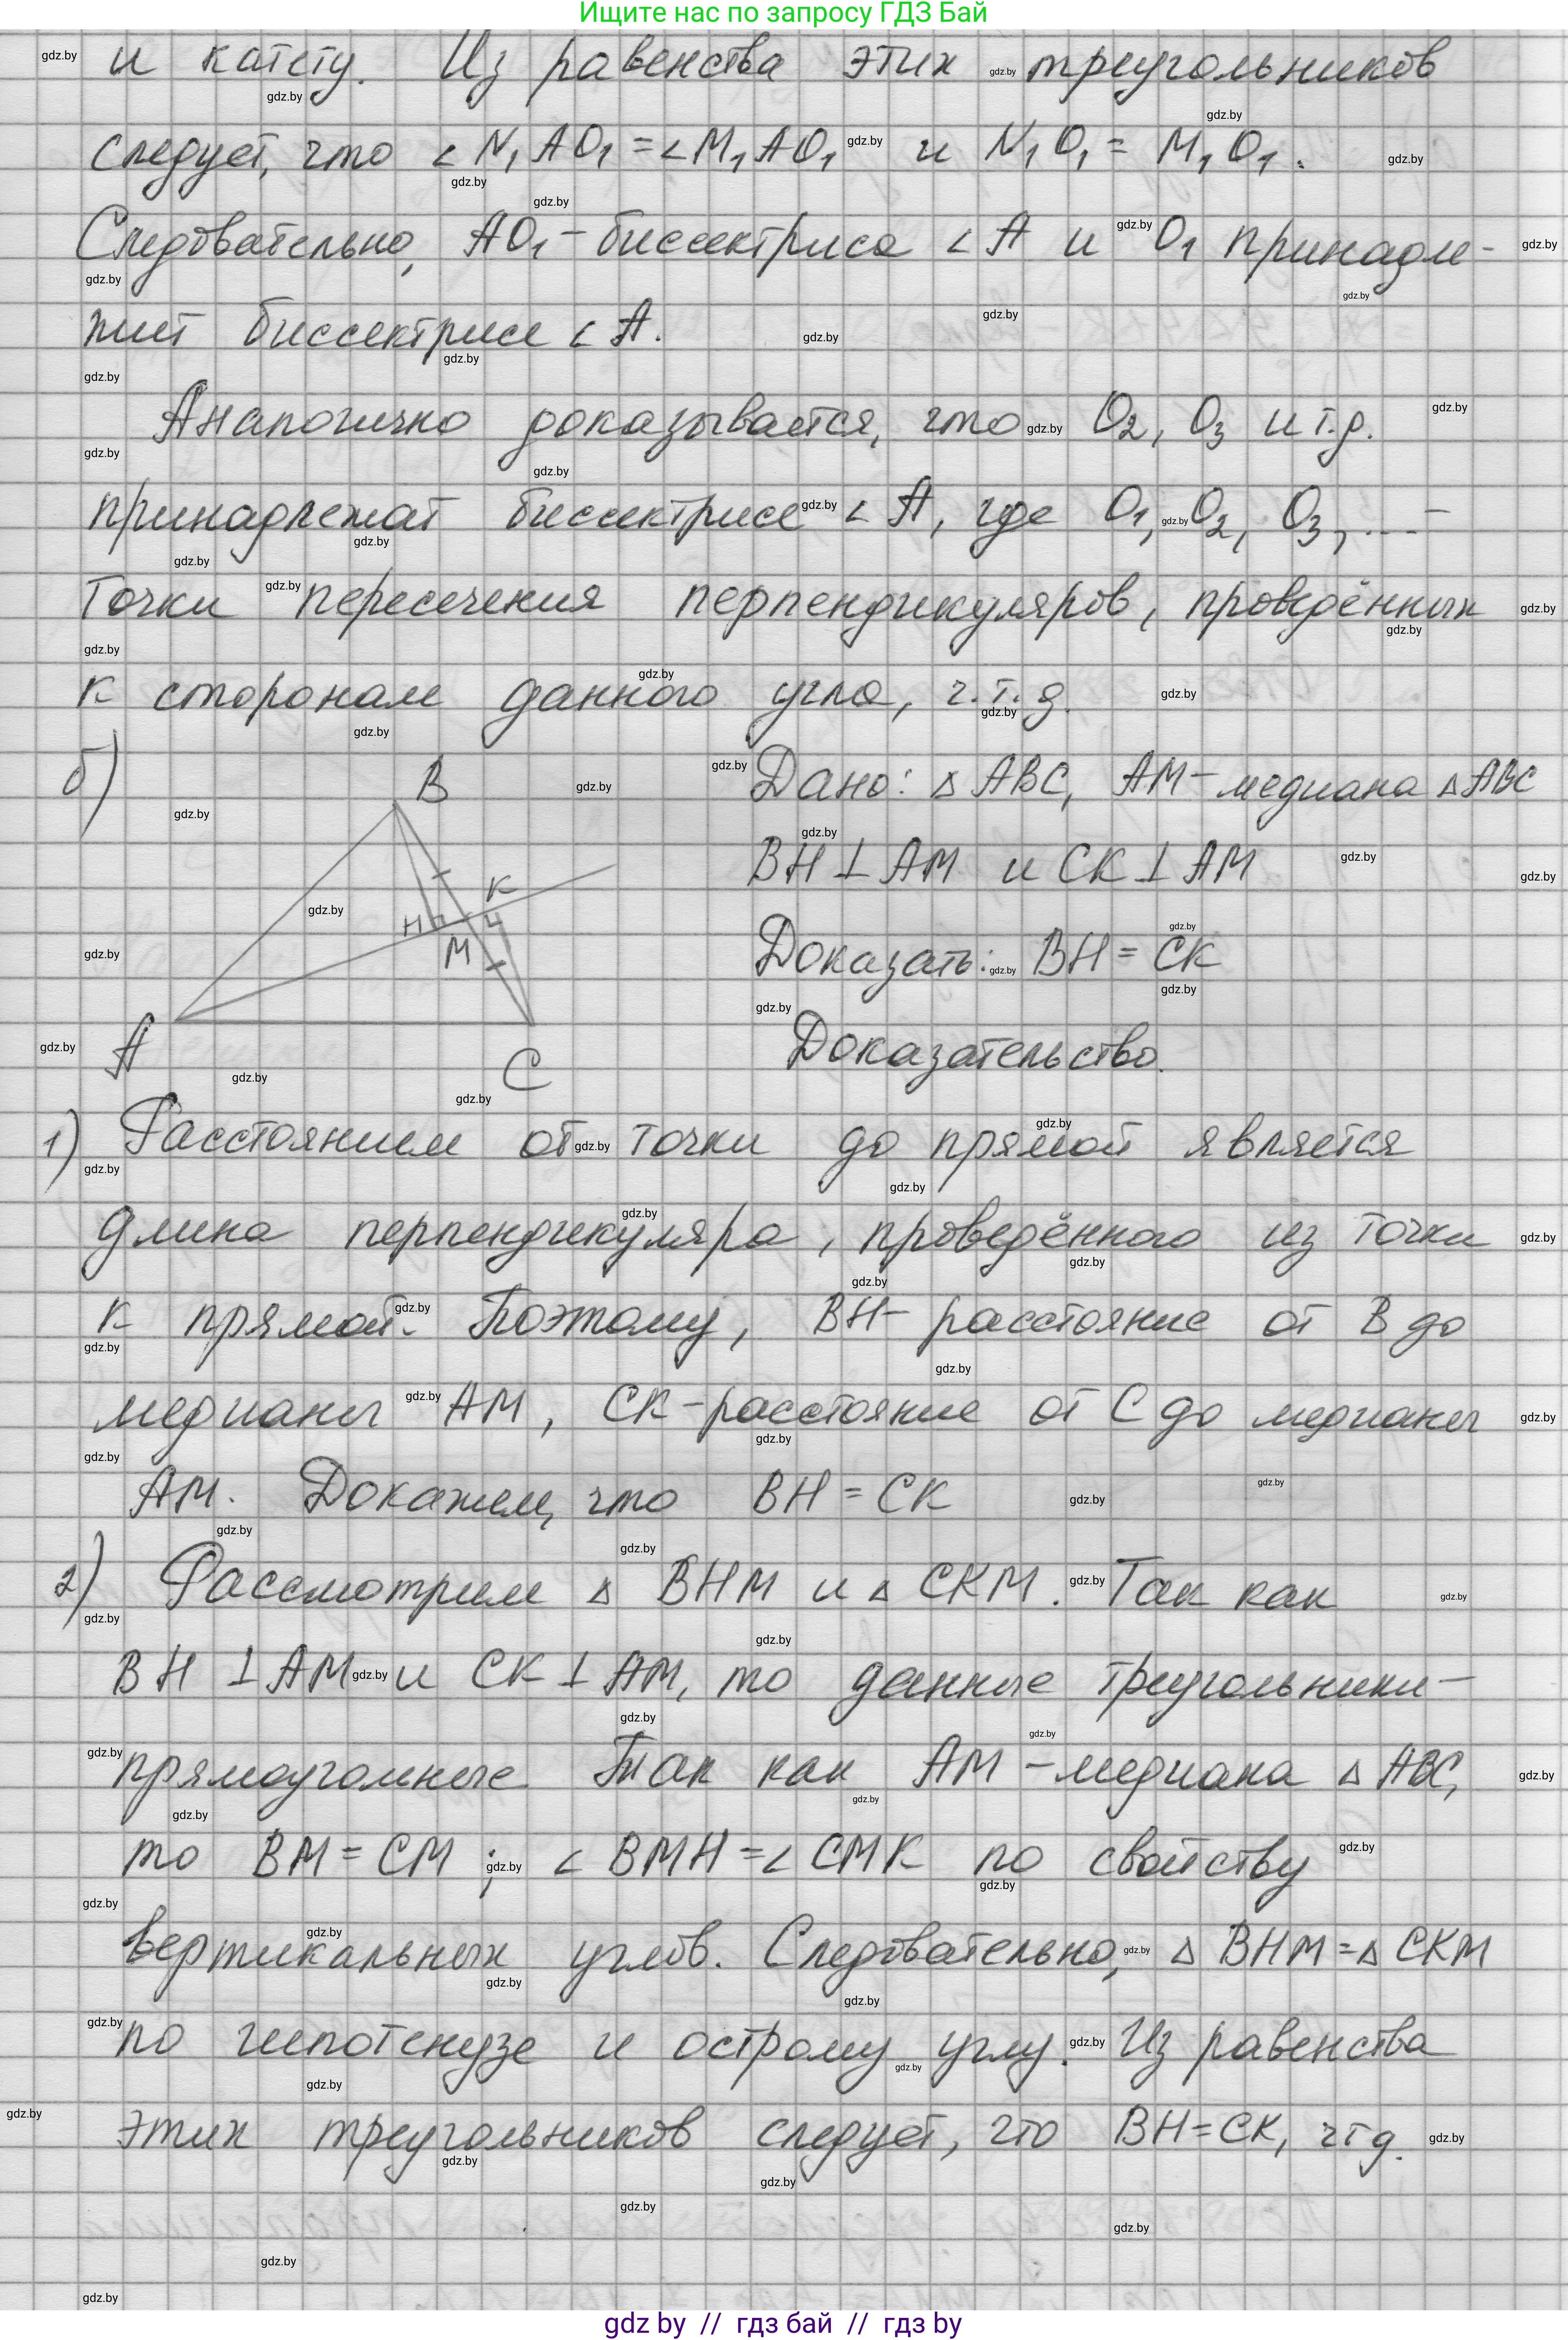 Ищите нас по запросу ГДЗ Бай
и катету. Из равенства этих треугольников
следует, что ∠N₁AO₁ = ∠M₁AO₁ и N₁O₁ = M₁O₁.
Следовательно, AO₁ - биссектриса ∠A и O₁ принадле-
жит биссектрисе ∠A.
Аналогично доказывается, что O₂, O₃ и т.д.
принадлежат биссектрисе ∠A, где O₁, O₂, O₃, ... -
точки пересечения перпендикуляров, проведённых
к сторонам данного угла, ч.т.д.
б)
B
K
H
M
A
C
Дано: △ABC, AM - медиана △ABC
BH ⊥ AM и CK ⊥ AM
Доказать: BH = CK
Доказательство.
1) Расстоянием от точки до прямой является
длина перпендикуляра, проведённого из точки
к прямой. Поэтому, BH - расстояние от B до
медианы AM, CK - расстояние от C до медианы
AM. Докажем, что BH = CK
2) Рассмотрим △BHM и △CKM. Так как
BH ⊥ AM и CK ⊥ AM, то данные треугольники -
прямоугольные Так как AM - медиана △ABC,
то BM = CM; ∠BMH = ∠CMK по свойству
вертикальных углов. Следовательно, △BHM = △CKM
по гипотенузе и острому углу. Из равенства
этих треугольников следует, что BH = CK, чтд.
gdz by // гдз бай // гдз by